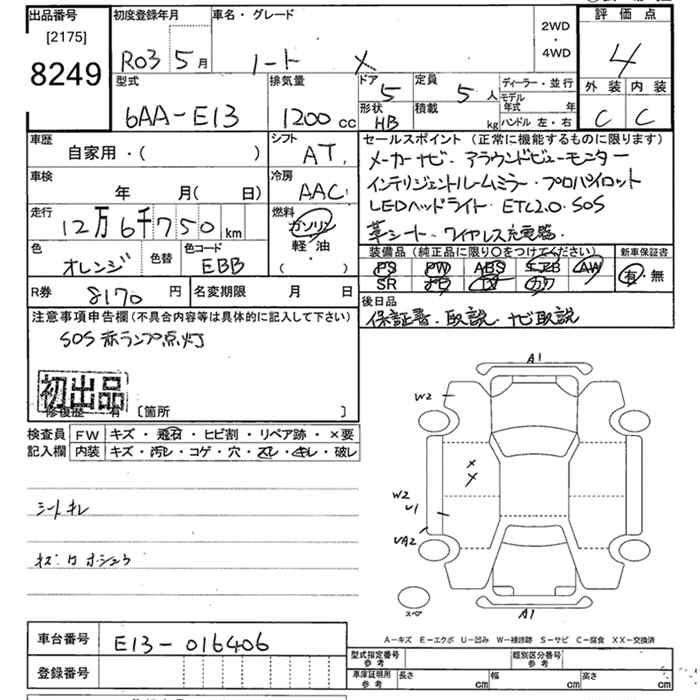 出品番号
[2175]
8249
初度登録年月
R03 5月
車名・グレード
ノート X
2WD
・
4WD
評価点
4
外装 内装
C C
型式
6AA-E13
排気量
1200cc
ドア
5
定員
5人
形状
HB
積載
kg
ディーラー・並行
モデル年式 年
ハンドル 左・右
車歴
自家用・( )
シフト
AT
車検
年 月( 日)
冷房
AAC
走行
12万6千750km
燃料
ガソリン
軽・油
( )
色
オレンジ
色替
色コード
EBB
R券 8170円
名変期限 月 日
セールスポイント(正常に機能するものに限ります)
メーカーナビ・アラウンドビューモニター
インテリジェントルームミラー・プロパイロット
LEDヘッドライト・ETC2.0・SOS
革シート・ワイヤレス充電器・
装備品(純正品に限り○をつけてください)
PS PW ABS エアB AW
SR ナビ TV カワ
新車保証書
有・無
後日品
保証書・取説・ナビ取説
注意事項申告欄(不具合内容等は具体的に記入して下さい)
SOS赤ランプ点灯
初出品
修復歴 有 [箇所 ]
検査員記入欄
FW キズ・飛石・ヒビ割・リペア跡・×要
内装 キズ・汚レ・コゲ・穴・スレ・キレ・破レ
シートキレ
A1
W2
W2
U1
UA2
A1
スペア
A-キズ E-エクボ U-凹み W-補修跡 S-サビ C-腐食 XX-交換済
車台番号 E13-016406
登録番号
型式指定番号参考
類別区分番号参考
車庫証明用参考
長さ cm
幅 cm
高さ cm